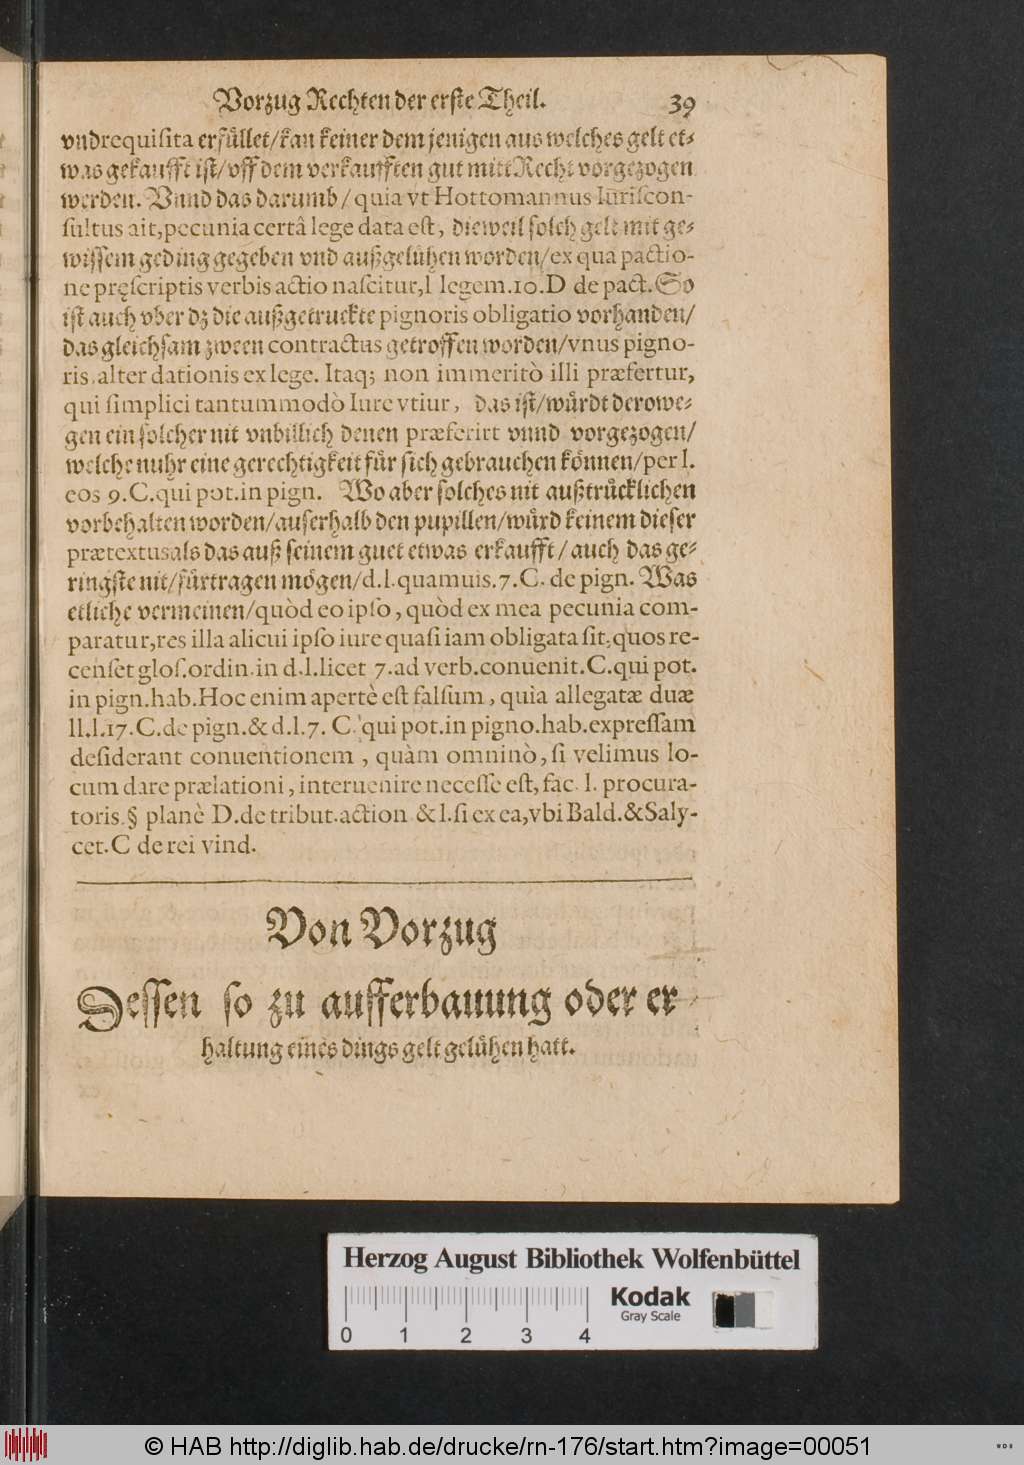 Vorzug Rechten der erste Theil. 39
vnd requisita erfüllet/kan keiner dem jenigen aus welches gelt et-
was gekaufft ist/vff dem verkaufften gut mitt Recht vorgezogen
werden. Vnnd das darumb/quia vt Hottomannus Iuriscon-
sultus ait, pecunia certâ lege data est, dieweil solch gelt mit ge-
wissem geding gegeben vnd außgelühen worden/ex qua pactio-
ne pręscriptis verbis actio nascitur, l legem.10.D de pact. So
ist auch vber dz die außgetruckte pignoris obligatio vorhanden/
das gleichsam zween contractus getroffen worden/vnus pigno-
ris, alter dationis ex lege. Itaq; non immeritò illi præfertur,
qui simplici tantummodò Iure vtiur, das ist/würdt derowe-
gen ein solcher nit vnbillich denen præferirt vnnd vorgezogen/
welche nuhr eine gerechtigkeit für sich gebrauchen können/per l.
eos 9.C.qui pot.in pign. Wo aber solches nit außtrücklichen
vorbehalten worden/auserhalb den pupillen/würd keinem dieser
prætextus als das auß seinem guet etwas erkaufft/auch das ge-
ringste nit/fürtragen mögen/d.l.quamuis.7.C. de pign. Was
etliche vermeinen/quòd eo ipso, quòd ex mea pecunia com-
paratur, res illa alicui ipso iure quasi iam obligata sit, quos re-
censet glos.ordin.in d.l.licet 7.ad verb.conuenit.C.qui pot.
in pign.hab. Hoc enim apertè est falsum, quia allegatæ duæ
ll.l.17.C.de pign.& d.l.7. C. qui pot.in pigno.hab.expressam
desiderant conuentionem, quàm omninò, si velimus lo-
cum dare prælationi, interuenire necesse est, fac. l. procura-
toris.§ planè D.de tribut.action & l.si ex ea, vbi Bald.& Saly-
cet.C de rei vind.
Von Vorzug
Dessen so zu aufferbauung oder er-
haltung eines dings gelt gelühen hatt.
Herzog August Bibliothek Wolfenbüttel
Kodak
Gray Scale
0 1 2 3 4
© HAB http://diglib.hab.de/drucke/rn-176/start.htm?image=00051